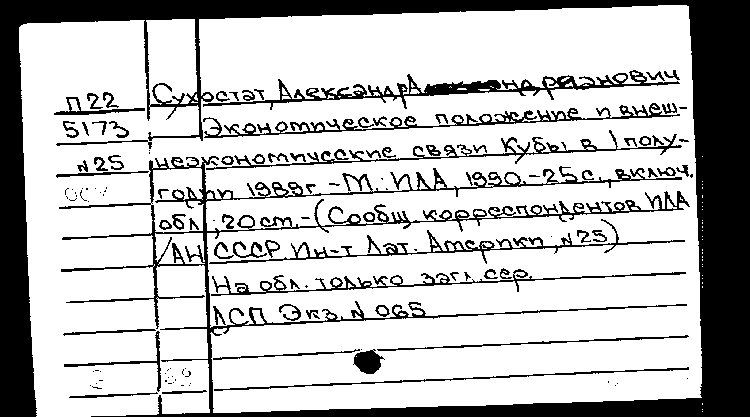 П22 Сухостат, Александр А
5173 Экономическое положение и внеш-
N25 неэкономические связи Кубы в I полу-
годии 1989г. - М.: ИЛА, 1990. - 25с., включ.
обл.; 20см. - (Сообщ. корреспондентов ИЛА
/АН СССР. Ин-т Лат. Америки; N25)
На обл. только загл. сер.
ДСП Экз. N 065
39